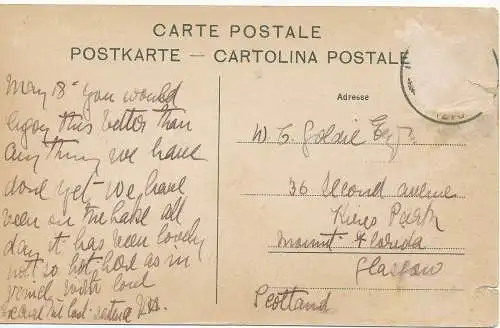 CARTE POSTALE
POSTKARTE — CARTOLINA POSTALE
Adresse
May 18" you would
enjoy this better than
anything we have
done yet – we have
been on the Lake all
day it has been lovely
not so hot here as in
Venice with love
W. C. Goldie Esq.
36 Second avenue
Kings Park
Mount Florida
Glasgow
Scotland